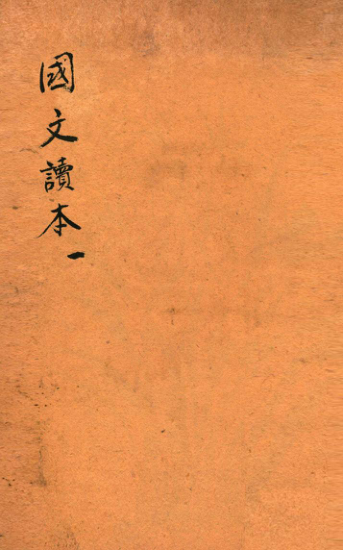 國文讀本一